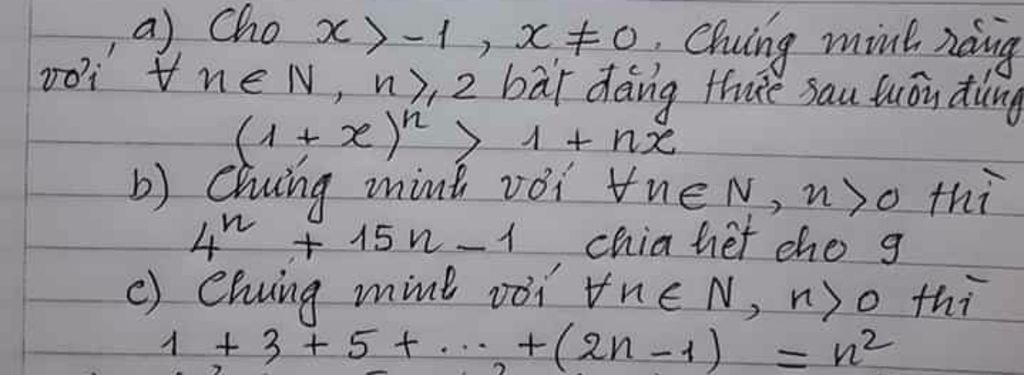 a) Cho x > -1, x ≠ 0. Chứng minh rằng
với ∀ n ∈ N, n ≥ 2 bất đẳng thức sau luôn đúng
(1 + x)ⁿ > 1 + nx
b) Chứng minh với ∀n ∈ N, n > 0 thì
4ⁿ + 15n - 1 chia hết cho 9
c) Chứng minh với ∀n ∈ N, n > 0 thì
1 + 3 + 5 + ... + (2n - 1) = n²